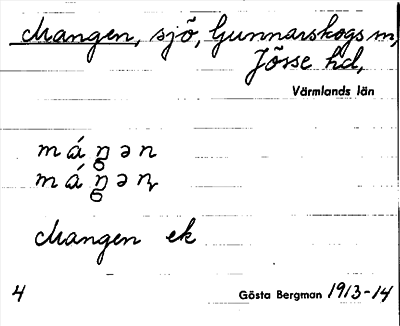 Mangen, sjö, Gunnarskogs sn,
Jösse hd,
Värmlands län
máŋən
máŋən
Mangen ek
4 Gösta Bergman 1913-14